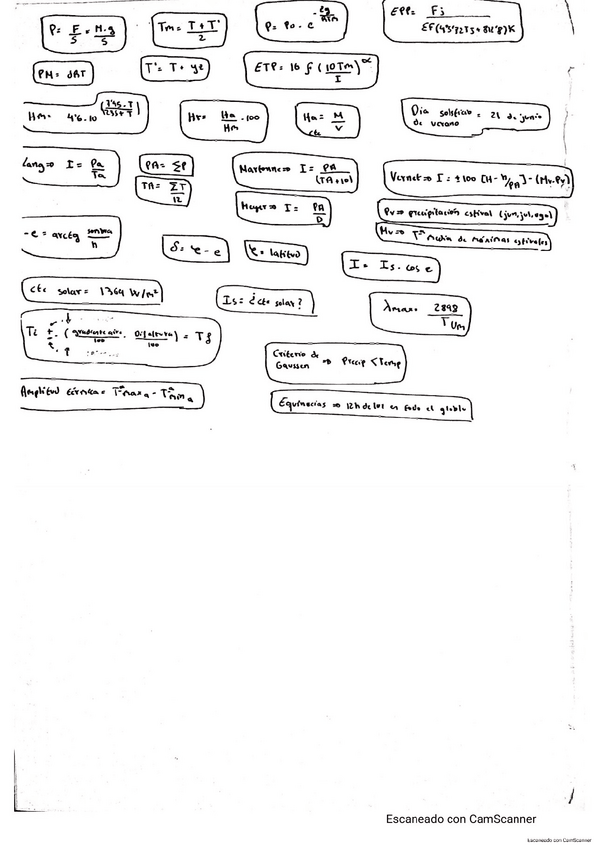 P = F/S = M·g/S
Tm = T + T'/2
P = Po · e^-zg/RTm
EPP = Fj
EF(45'32Tj + 811'8)K
PM = dRT
T' = T + yz
ETP = 16 f (10Tm/I)^α
Hm = 4'6 · 10
Hr = Ha/Hm · 100
Ha = M/V
cte
Dia solsticio de verano = 21 de junio
Lang ⇒ I = Pa/Ta
PA = ΣP
TA = ΣT/12
Martonne ⇒ I = PA/(TA+10)
Meyer ⇒ I = PA/D
Vernet ⇒ I = ±100 [H - h/PA] · (Mv·Pv)
Pv ⇒ precipitación estival (jun, jul, ago)
Mv ⇒ Tª media de máximas estivales
- e = arctg sombra/h
δ = φ - e
φ = latitud
I = Is · cos e
cte solar = 1364 W/m²
Is = ¿cte solar?
λmax = 2898/T
Ti ± (gradiente aire/100 · Dif altura/100) = Tf
Criterio de Gaussen ⇒ Precip < Temp
Amplitud térmica = Tª max a - Tª min a
Equinocios ⇒ 12h de luz en todo el globo
Escaneado con CamScanner
Escaneado con CamScanner